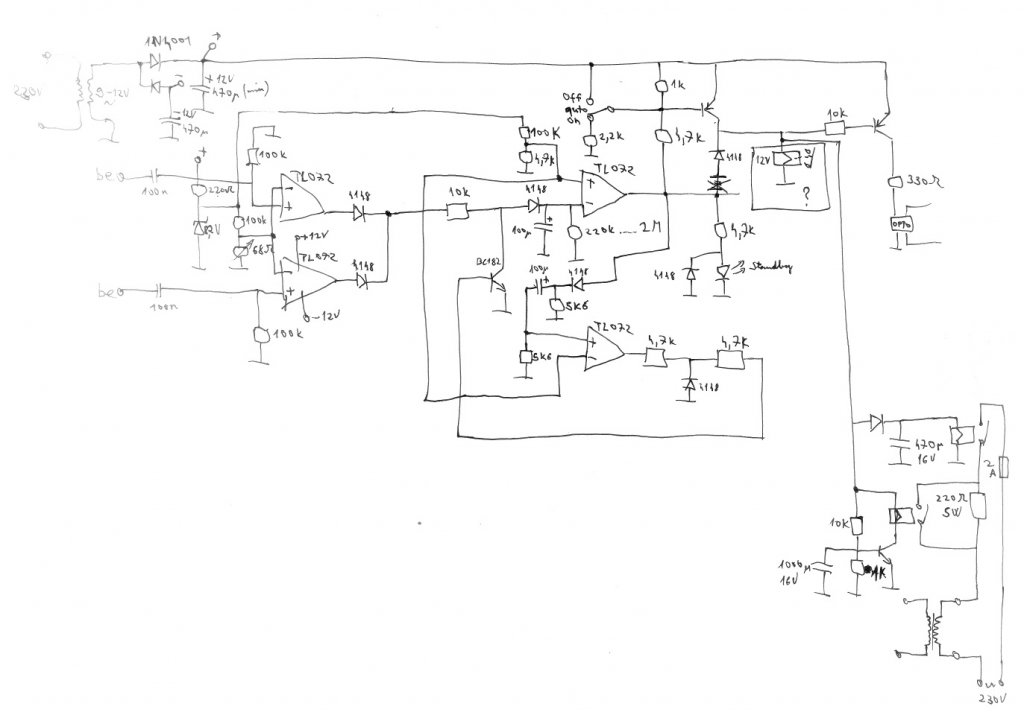 1N4001
+
+
12V
470µ (min)
230V
9-12V
~
12V
470µ
−
Off
auto
on
1k
2,2k
4,7k
100K
4,7k
100k
be
100n
+
220Ω
100k
68Ω
TL072
4148
10k
4148
100µ
+
220k ... 2M
TL072
4148
12V
?
10k
330Ω
OPTO
4,7k
4148
Standby
TL072
+12V
-12V
4148
be
100n
100k
BC182
100µ
+
4148
5K6
5K6
TL072
4,7k
4,7K
4148
470µ
16V
2
A
220Ω
5W
10K
1K
1000µ
16V
230V